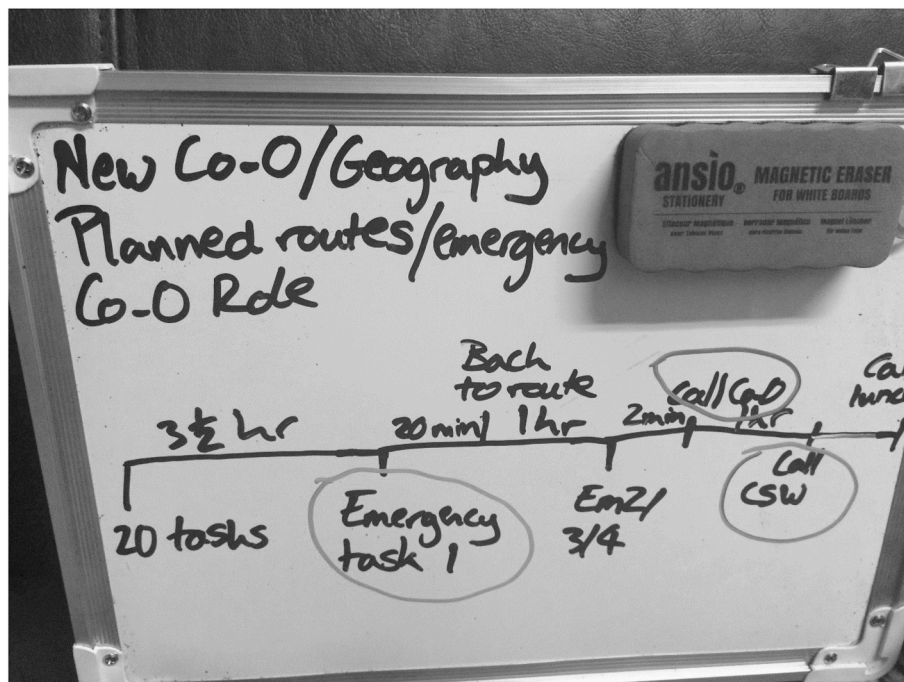 New Co-O/Geography
Planned routes/emergency
Co-O Role
ansio®
STATIONERY
MAGNETIC ERASER
FOR WHITE BOARDS
Back
to route
Call Co-O
3½ hr
20 min
1 hr
2 min
1 hr
20 tasks
Emergency
task 1
Em2/
3/4
Call
CSW